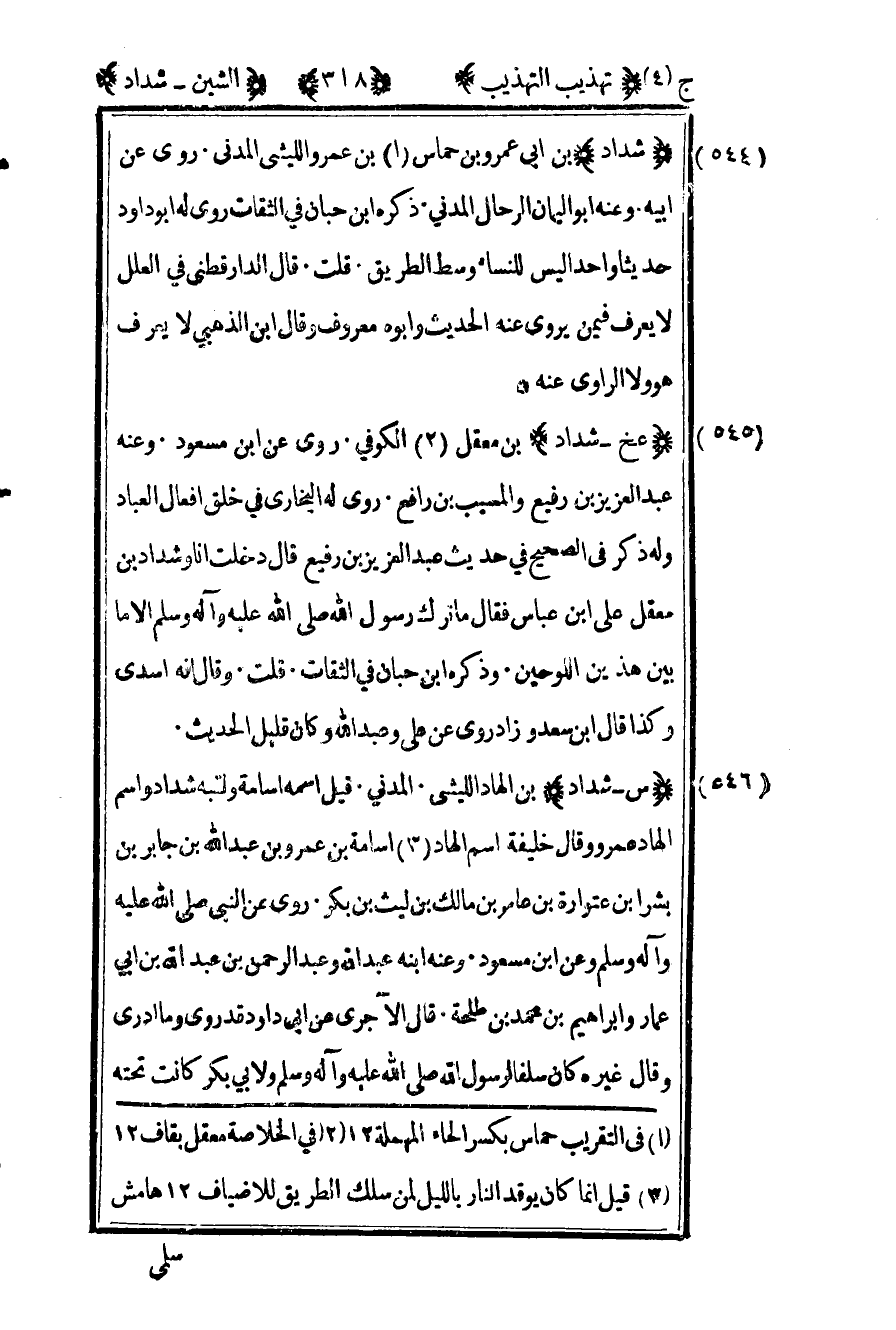 ج (٤) ﴿ تهذيب التهذيب ﴾ ﴿٣١٨﴾ ﴿ الشين ـ شداد ﴾
(٥٤٤) ﴿ شداد ﴾ بن ابي عمرو بن حماس (١) بن عمرو الليثى المدنى · روى عن
ابيه · وعنه ابو اليمان الرحال المدني · ذكره ابن حبان في الثقات روى له ابو داود
حديثا واحدا ليس للنساء وسط الطريق · قلت · قال الدارقطنى في العلل
لا يعرف فيمن يروى عنه الحديث وابوه معروف وقال ابن الذهبي لا يعرف
هو ولا الراوى عنه ۞
(٥٤٥) ﴿ عخ ـ شداد ﴾ بن معقل (٢) الكوفي · روى عن ابن مسعود · وعنه
عبد العزيز بن رفيع والمسيب بن رافع · روى له البخارى في خلق افعال العباد
وله ذكر فى الصحيح في حديث عبد العزيز بن رفيع قال دخلت انا وشداد بن
معقل على ابن عباس فقال ما ترك رسول الله صلى الله عليه وآله وسلم الا ما
بين هذين اللوحين · وذكره ابن حبان في الثقات · قلت · وقال انه اسدى
وكذا قال ابن سعد وزاد روى عن على وعبد الله وكان قليل الحديث ·
(٥٤٦) ﴿ س ـ شداد ﴾ بن الهاد الليثى · المدني · قيل اسمه اسامة ولقبه شداد واسم
الهاد عمرو وقال خليفة اسم الهاد (٣) اسامة بن عمرو بن عبد الله بن جابر بن
بشر ابن عتوارة بن عامر بن مالك بن ليث بن بكر · روى عن النبي صلى الله عليه
وآله وسلم وعن ابن مسعود · وعنه ابنه عبد الله وعبد الرحمن بن عبد الله بن ابي
عمار وابراهيم بن محمد بن طلحة · قال الآجرى عن ابي داود قد روى وما ادرى
وقال غيره كان سلفا لرسول الله صلى الله عليه وآله وسلم ولابي بكر كانت تحته
(١) فى التقريب حماس بكسر الحاء المهملة ١٢ (٢) في الخلاصة معقل بقاف ١٢
(٣) قيل انما كان يوقد النار بالليل لمن سلك الطريق للاضياف ١٢ هامش
سلمى